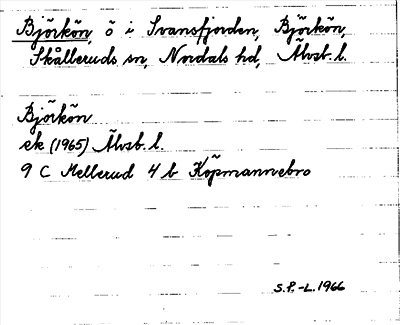 Björkön, ö i Svansfjorden, Björkön,
Skålleruds sn, Nordals hd, Älvsb. l.
Björkön
ek (1965) Älvsb. l.
9 C Mellerud 4 b Köpmannebro
S.P.-L. 1966